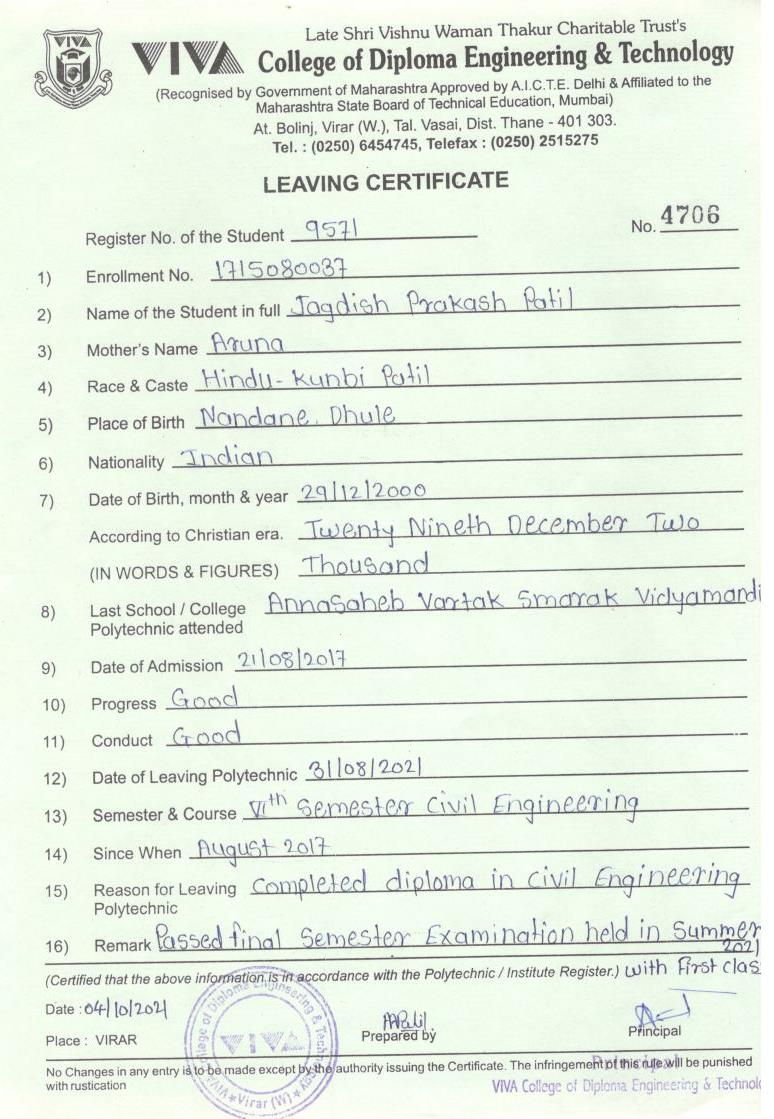 Late Shri Vishnu Waman Thakur Charitable Trust's
VIVA
VIVA College of Diploma Engineering & Technology
(Recognised by Government of Maharashtra Approved by A.I.C.T.E. Delhi & Affiliated to the
Maharashtra State Board of Technical Education, Mumbai)
At. Bolinj, Virar (W.), Tal. Vasai, Dist. Thane - 401 303.
Tel. : (0250) 6454745, Telefax : (0250) 2515275
LEAVING CERTIFICATE
Register No. of the Student 9571 No. 4706
1) Enrollment No. 1715080037
2) Name of the Student in full Jagdish Prakash Patil
3) Mother's Name Aruna
4) Race & Caste Hindu-Kunbi Patil
5) Place of Birth Nandane. Dhule
6) Nationality Indian
7) Date of Birth, month & year 29/12/2000
According to Christian era. Twenty Nineth December Two
(IN WORDS & FIGURES) Thousand
8) Last School / College Annasaheb Vartak Smarak Vidyamandi
Polytechnic attended
9) Date of Admission 21/08/2017
10) Progress Good
11) Conduct Good
12) Date of Leaving Polytechnic 31/08/2021
13) Semester & Course VIth Semester Civil Engineering
14) Since When August 2017
15) Reason for Leaving Completed diploma in Civil Engineering
Polytechnic
16) Remark Passed final Semester Examination held in Summer
2021
(Certified that the above information is in accordance with the Polytechnic / Institute Register.) with First clas
Date : 04/10/2021
Place : VIRAR
Prepared by
Principal
VIVA
College of Diploma Engineering &
Virar (W)
No Changes in any entry is to be made except by the authority issuing the Certificate. The infringement of this rule will be punished
with rustication
Principal
VIVA College of Diploma Engineering & Technolo